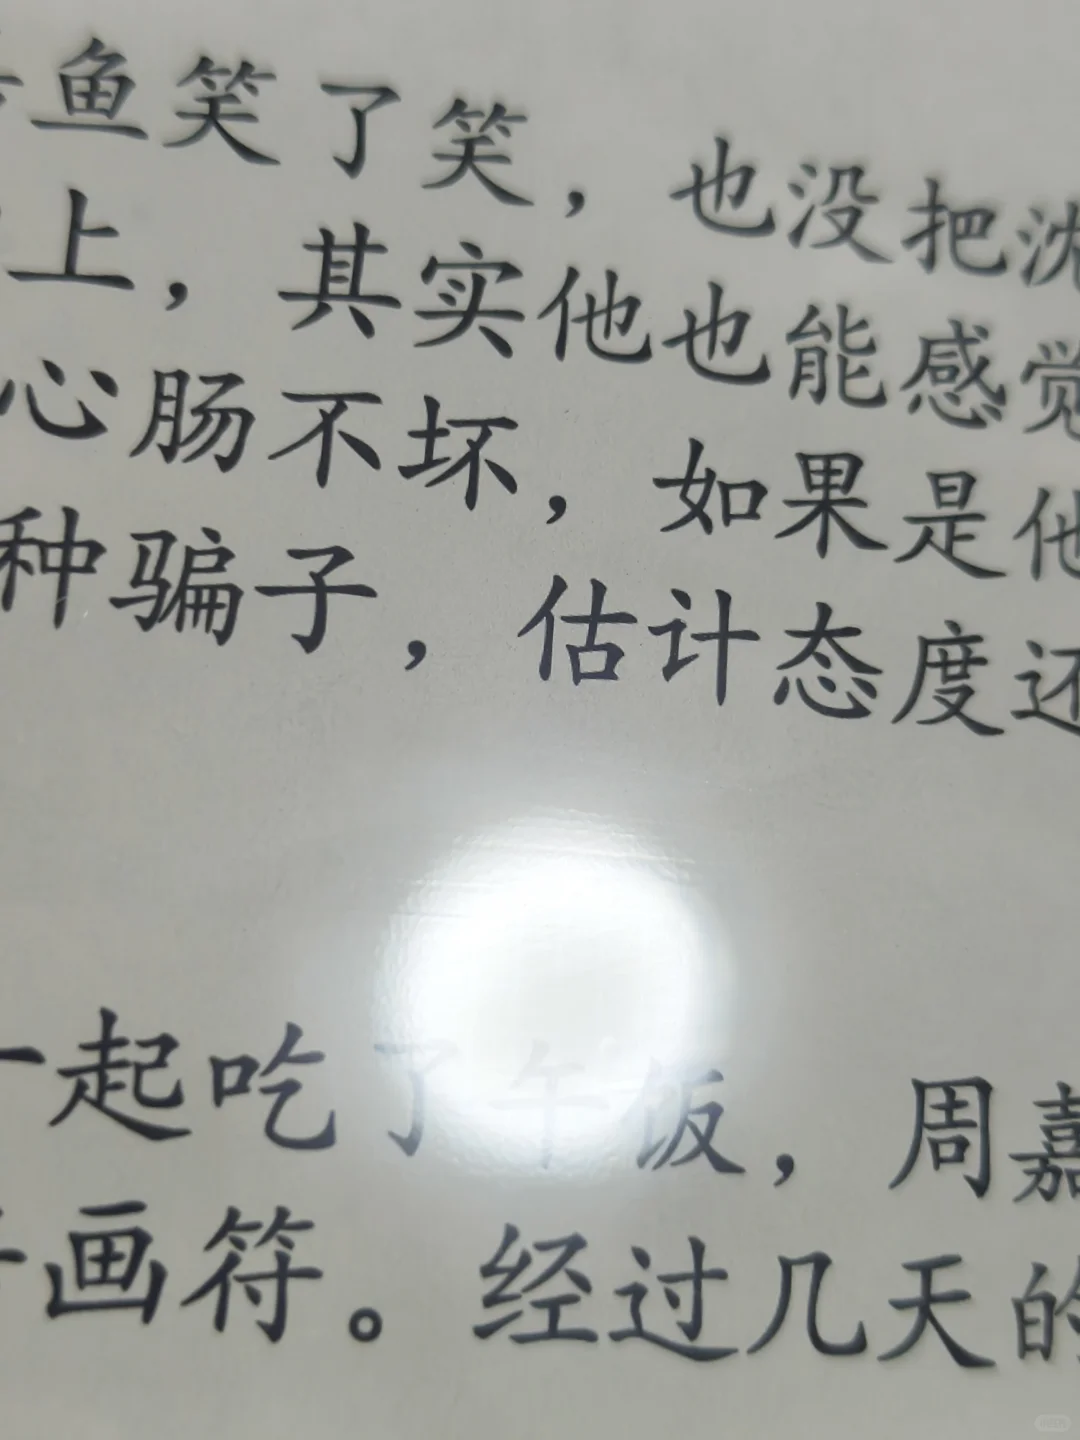 鱼笑了笑，也没把沈
上，其实他也能感觉
心肠不坏，如果是他
种骗子，估计态度还
一起吃了午饭，周嘉
画符。经过几天的